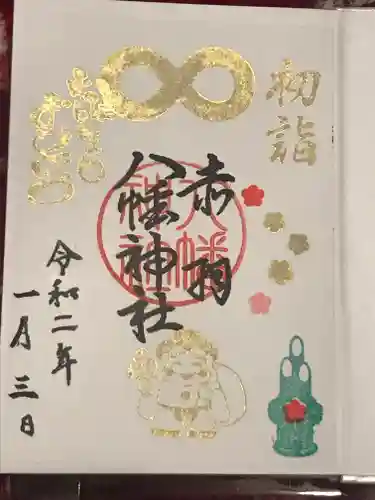 初詣
赤羽
八幡神社
八幡神社
令和二年
一月三日